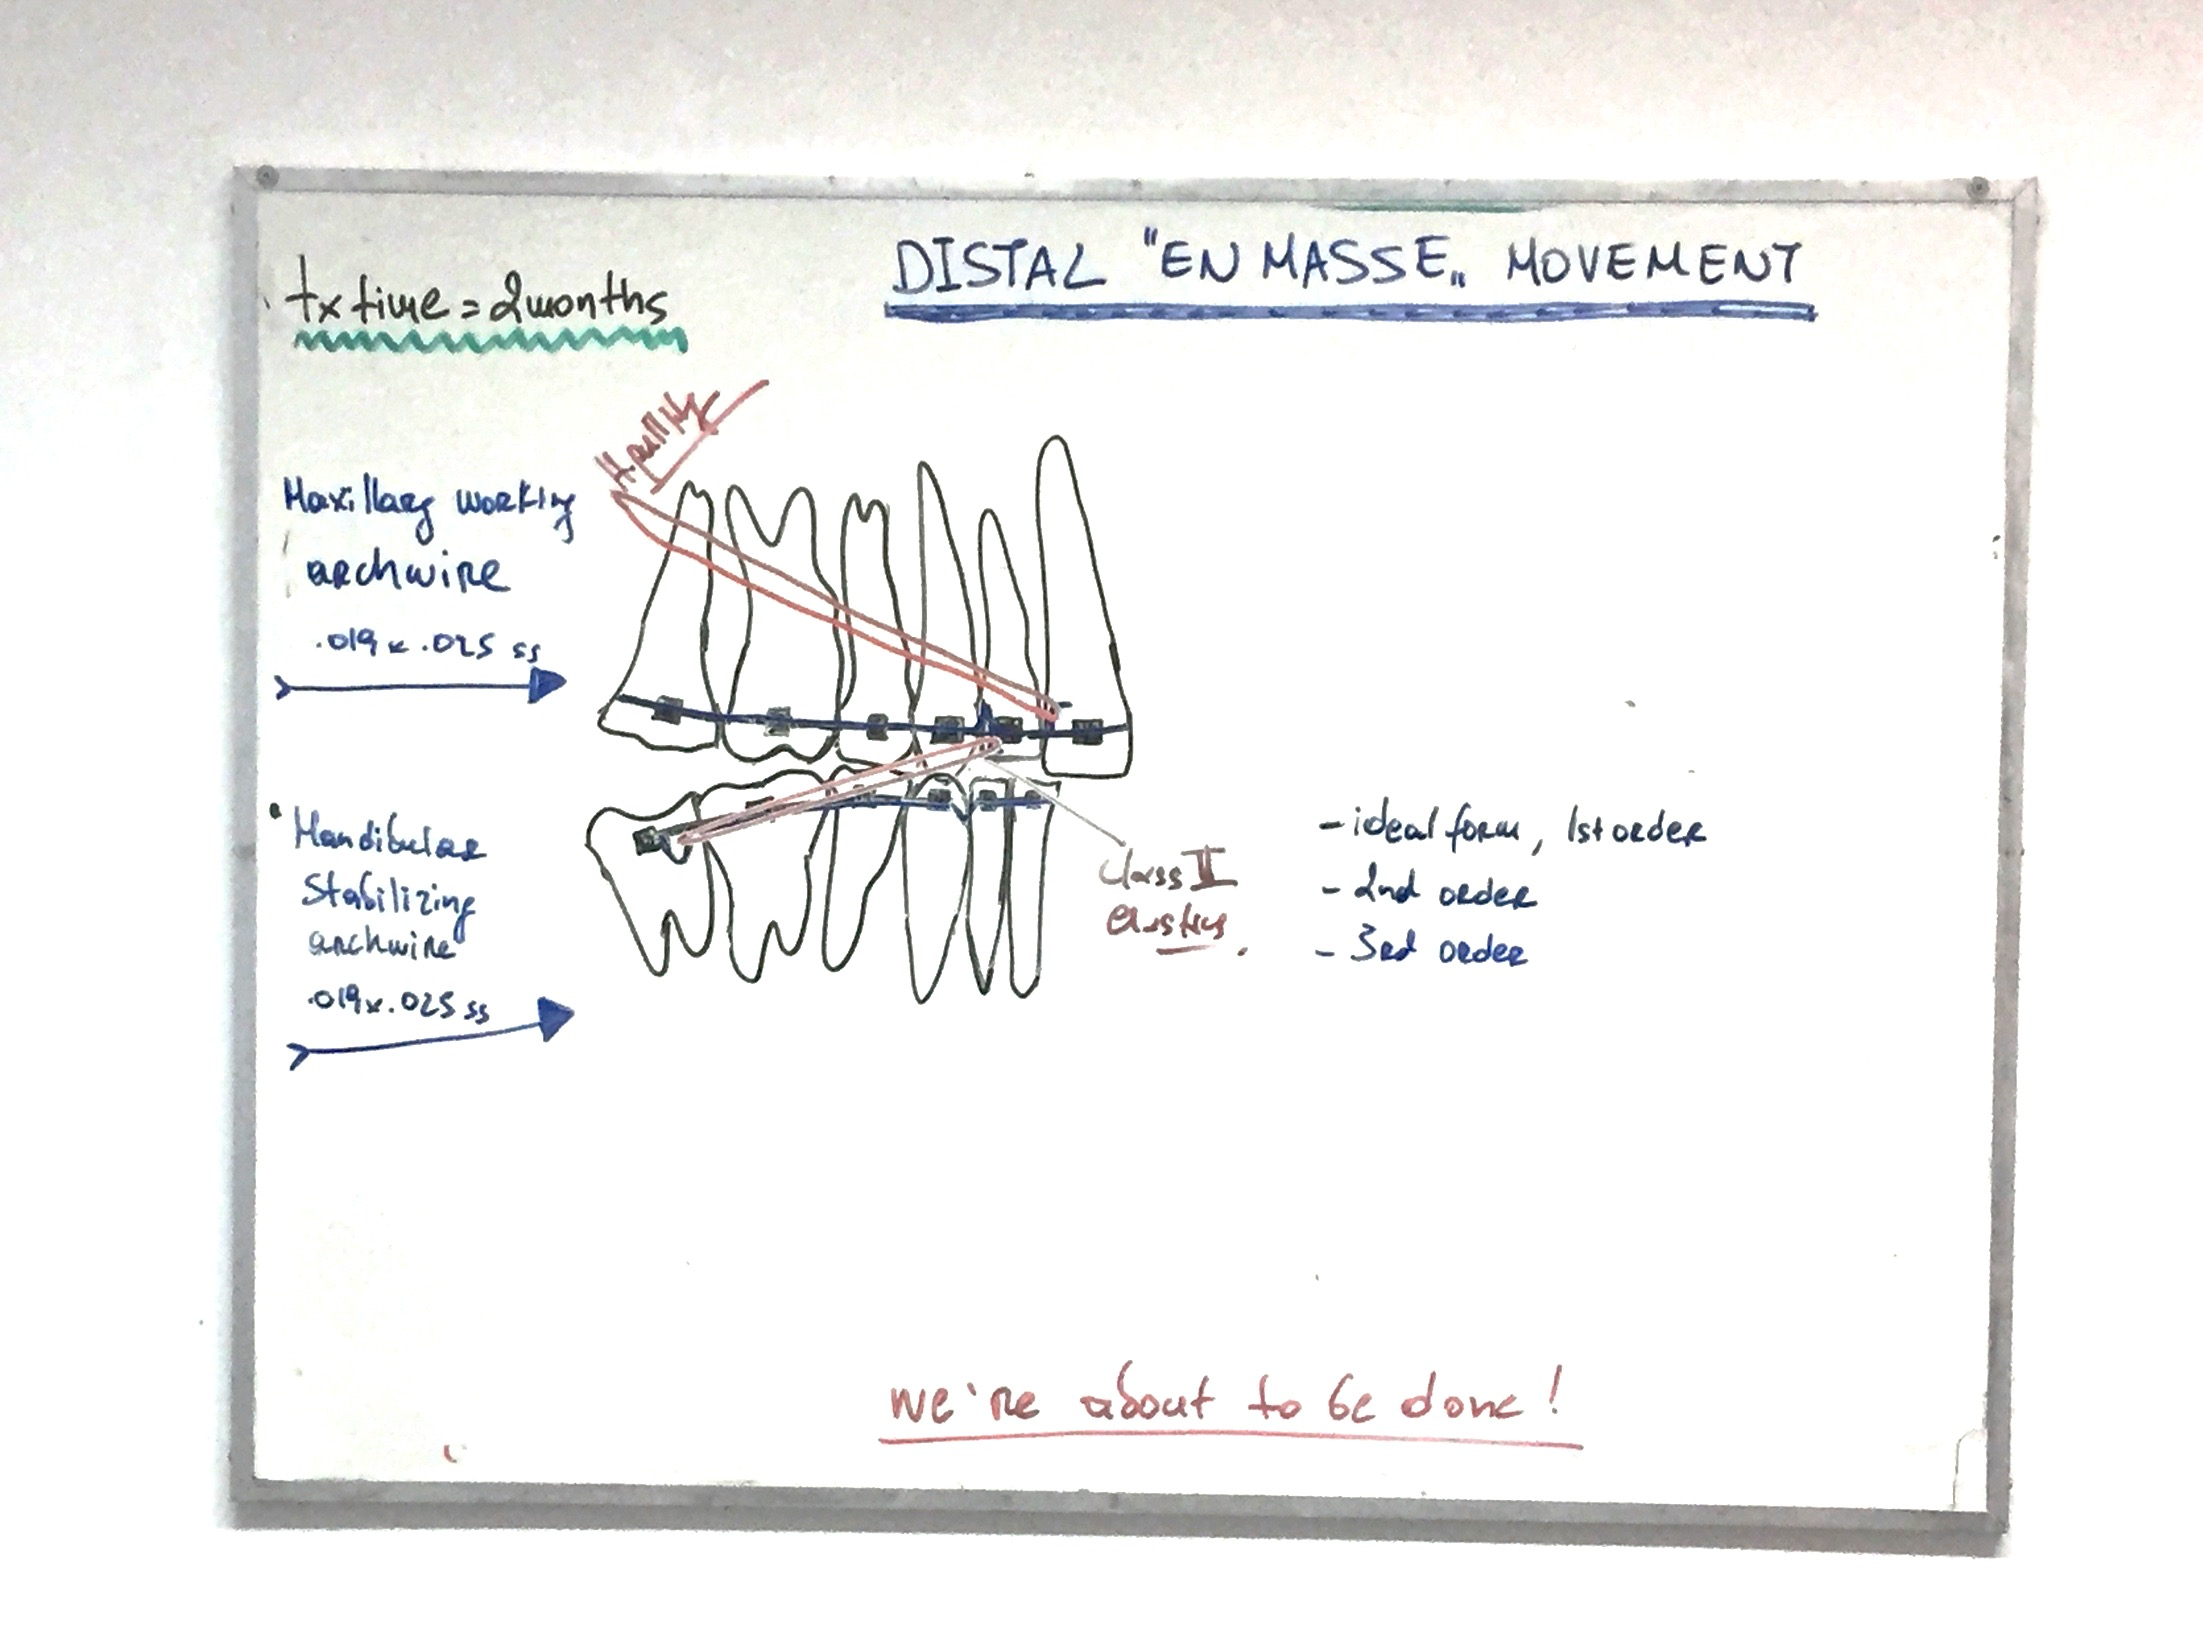 tx time = 2 months
DISTAL "EN MASSE„ MOVEMENT
Maxillary working
archwire
.019 x .025 ss
Mandibular
Stabilizing
archwire
.019 x .025 ss
Class II
elastics.
- ideal form, 1st order
- 2nd order
- 3rd order
we're about to be done!